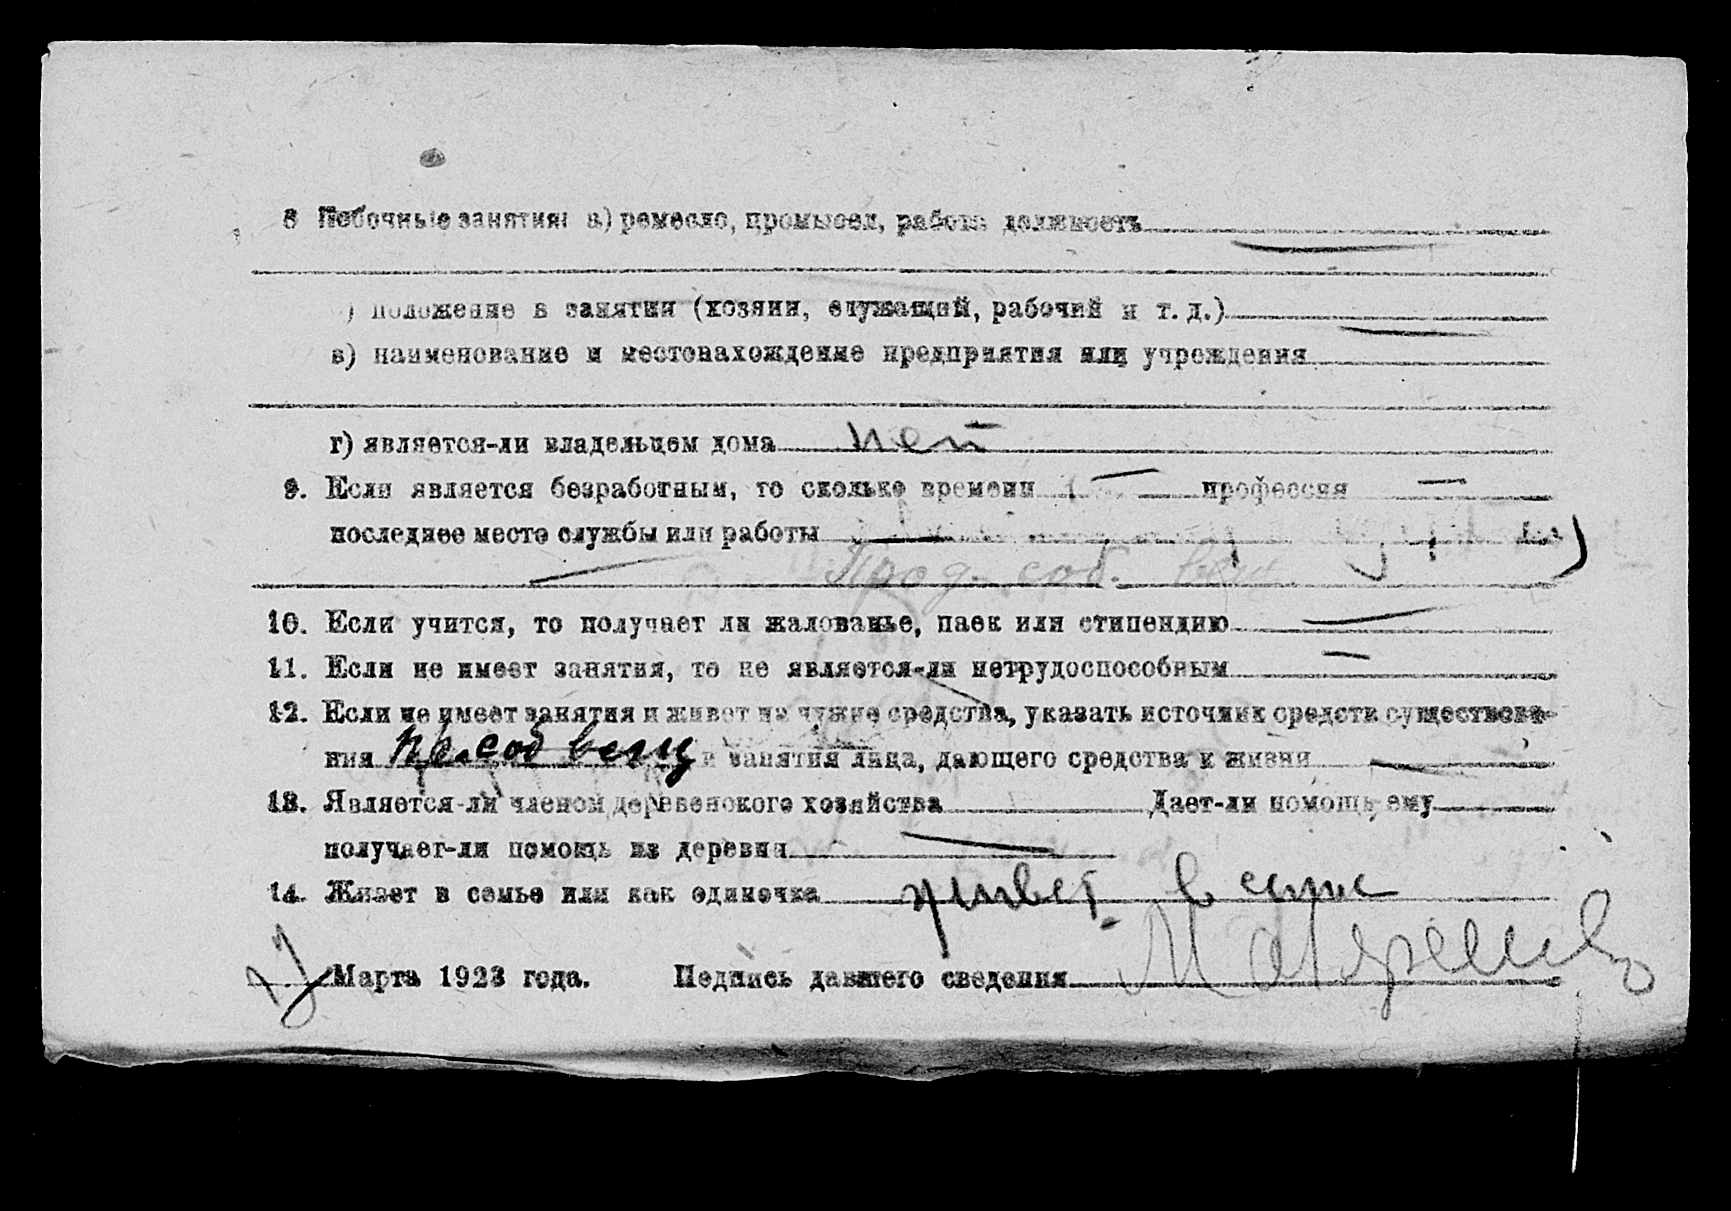 8 Побочные занятия: а) ремесло, промысел, работа должность
) положение в занятии (хозяин, служащий, рабочий и т. д.)
в) наименование и местонахождение предприятия или учреждения
г) является-ли владельцем дома нет
9. Если является безработным, то сколько времени — профессия —
последнее место службы или работы —
Прод. соб. вещ.
10. Если учится, то получает ли жалованье, паек или стипендию —
11. Если не имеет занятия, то не является-ли нетрудоспособным —
12. Если не имеет занятия и живет на чужие средства, указать источник средств существова-
ния Пр. соб вещ и занятия лица, дающего средства к жизни —
13. Является-ли членом деревенского хозяйства Дает-ли помощь ему
получает-ли помощь из деревни —
14. Живет в семье или как одиночка живет в семье
Марта 1923 года. Подпись давшего сведения